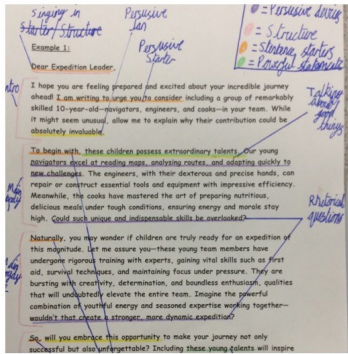 Singing in
Starter/Structure
Persusive
lan
Persusive
Starter
= Persusive devices
= Structure
= Sentence starters
= Powerful statements
Example 1:
Dear Expedition Leader,
I hope you are feeling prepared and excited about your incredible journey
ahead! I am writing to urge you to consider including a group of remarkably
skilled 10-year-old—navigators, engineers, and cooks—in your team. While
it might seem unusual, allow me to explain why their contribution could be
absolutely invaluable.
Talking
about
good
things
To begin with, these children possess extraordinary talents. Our young
navigators excel at reading maps, analysing routes, and adapting quickly to
new challenges. The engineers, with their dexterous and precise hands, can
repair or construct essential tools and equipment with impressive efficiency.
Meanwhile, the cooks have mastered the art of preparing nutritious,
delicious meals under tough conditions, ensuring energy and morale stay
high. Could such unique and indispensable skills be overlooked?
Rhetorical
questions
Naturally, you may wonder if children are truly ready for an expedition of
this magnitude. Let me assure you—these young team members have
undergone rigorous training with experts, gaining vital skills such as first
aid, survival techniques, and maintaining focus under pressure. They are
bursting with creativity, determination, and boundless enthusiasm, qualities
that will undoubtedly elevate the entire team. Imagine the powerful
combination of youthful energy and seasoned expertise working together—
wouldn't that create a stronger, more dynamic expedition?
So, will you embrace this opportunity to make your journey not only
successful but also unforgettable? Including these young talents will inspire